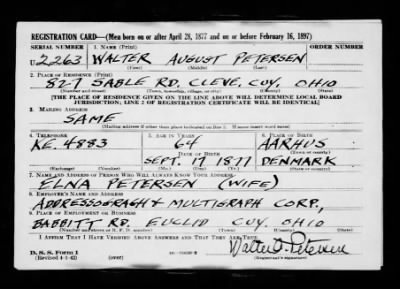 REGISTRATION CARD—(Men born on or after April 28, 1877 and on or before February 16, 1897)
SERIAL NUMBER 1. NAME (Print) ORDER NUMBER
U 2263 WALTER AUGUST PETERSEN
(First) (Middle) (Last)
2. PLACE OF RESIDENCE (Print)
827 SABLE RD. CLEVE, CUY, OHIO
(Number and street) (Town, township, village, or city) (County) (State)
[THE PLACE OF RESIDENCE GIVEN ON THE LINE ABOVE WILL DETERMINE LOCAL BOARD
JURISDICTION; LINE 2 OF REGISTRATION CERTIFICATE WILL BE IDENTICAL]
3. MAILING ADDRESS
SAME
(Mailing address if other than place indicated on line 2. If same insert word same)
4. TELEPHONE 5. AGE IN YEARS 6. PLACE OF BIRTH
KE. 4883 64 AARHUS
DATE OF BIRTH (Town or county)
SEPT. 17 1877 DENMARK
(Exchange) (Number) (Mo.) (Day) (Yr.) (State or country)
7. NAME AND ADDRESS OF PERSON WHO WILL ALWAYS KNOW YOUR ADDRESS
ELNA PETERSEN (WIFE)
8. EMPLOYER'S NAME AND ADDRESS
ADDRESSOGRAPH MULTIGRAPH CORP,
9. PLACE OF EMPLOYMENT OR BUSINESS
BABBITT RD. EUCLID CUY, OHIO
(Number and street or R. F. D. number) (Town) (County) (State)
I AFFIRM THAT I HAVE VERIFIED ABOVE ANSWERS AND THAT THEY ARE TRUE.
Walter A. Petersen
D. S. S. Form 1
(Revised 4-1-42) (over) (Registrant's signature)